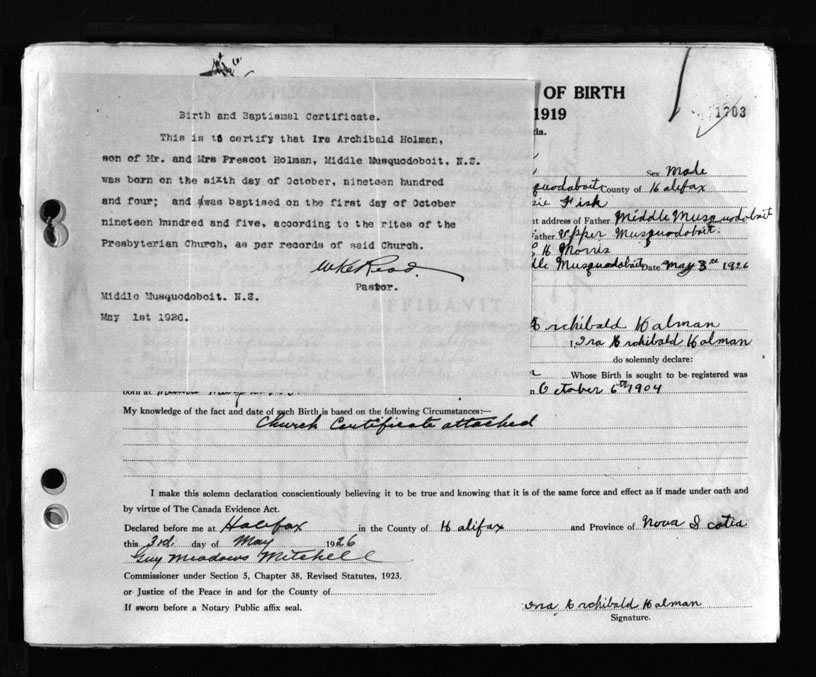 Birth and Baptismal Certificate.
This is to certify that Ira Archibald Holman,
son of Mr. and Mrs Prescot Holman, Middle Musquodoboit, N.S.
was born on the sixth day of October, nineteen hundred
and four; and was baptised on the first day of October
nineteen hundred and five, according to the rites of the
Presbyterian Church, as per records of said Church.
Pastor.
Middle Musquodoboit. N.S.
May 1st 1926.
OF BIRTH
1919
1703
Sex Male
County of Halifax
Fisk
address of Father Middle Musquodoboit
Father Upper Musquodoboit.
H Morris
Musquodoboit Date May 3rd 1926
AFFIDAVIT
Archibald Holman
I, Ira Archibald Holman
do solemnly declare:
Whose Birth is sought to be registered was
born at
October 6th 1904
My knowledge of the fact and date of such Birth is based on the following Circumstances:—
Church Certificate attached
I make this solemn declaration conscientiously believing it to be true and knowing that it is of the same force and effect as if made under oath and
by virtue of The Canada Evidence Act.
Declared before me at Halifax in the County of Halifax and Province of Nova Scotia
this 3rd day of May 1926
Guy Meadows Mitchell
Commissioner under Section 5, Chapter 38, Revised Statutes, 1923.
or Justice of the Peace in and for the County of
If sworn before a Notary Public affix seal.
Ira Archibald Holman
Signature.